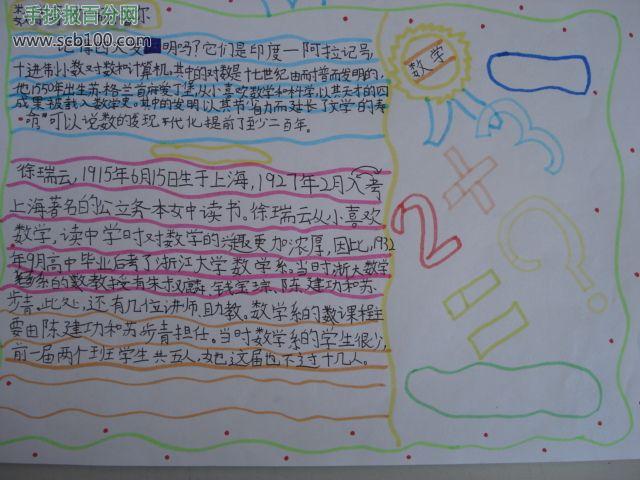 手抄报百分网
www.scb100.com
尔
明吗?它们是印度一阿拉记号,
十进制小数对数和计算机。其中的对数是十七世纪由耐普尔发明的,
他1550年出生苏格兰首府爱丁堡,从小喜欢数学和科学,以其天才的四
成果被载入数学史。其中的发明以其节省力而延长了文学的寿
命"可以说数的发现
化提前了至少二百年。
数学
徐瑞云,1915年6月15日生于上海,1927年2月入考
上海著名的公立务本女中读书。徐瑞云从小喜欢
数学,读中学时对数学的兴趣更加浓厚,因此,1932
年9月高中毕业后考了浙江大学数学系。当时浙大数学
系的数教授有朱叔麟、钱宝琮、陈建功和苏
步青。此外,还有几位讲师、助教。数学系的数课程主
要由陈建功和苏步青担任。当时数学系的学生很少,
前一届两个班学生共五人,她这届也不过十几人。
3
2+
=
?